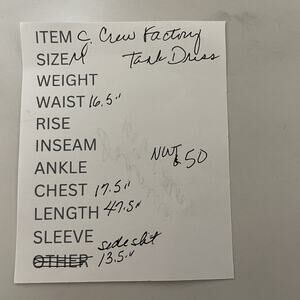 ITEM C. Crew Factory
SIZE M Tank Dress
WEIGHT
WAIST 16.5"
RISE
INSEAM
ANKLE NWT
CHEST 17.5" $50
LENGTH 47.5"
SLEEVE
side slit
OTHER 13.5"